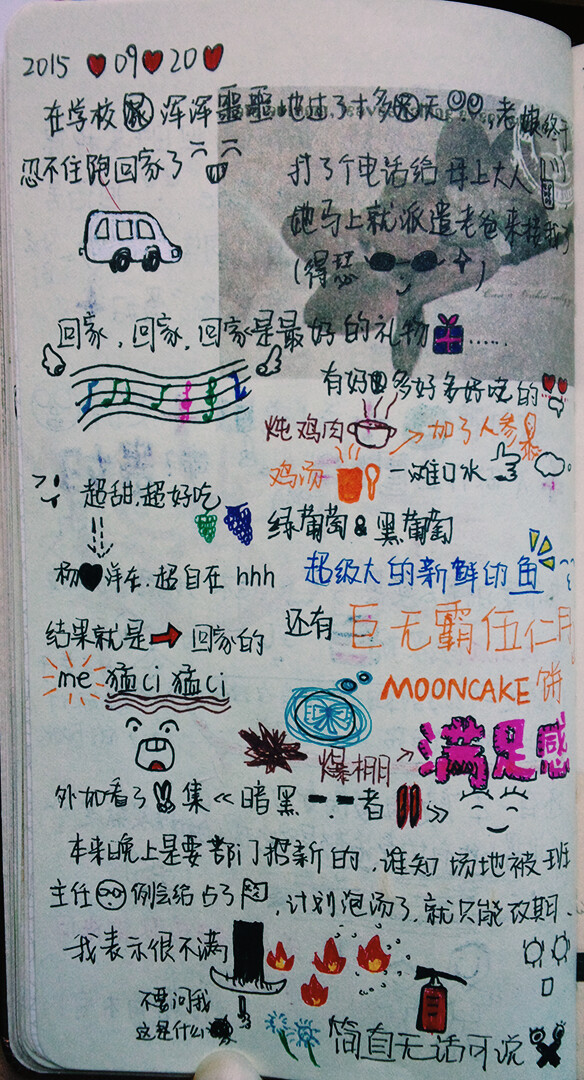 2015 09 20
在学校浑浑噩噩地过了十多天,老娘终于
忍不住跑回家了
打了个电话给母上大人
她马上就派遣老爸来接我了
(得瑟)
回家,回家,回家是最好的礼物……
有好多好多好吃的
炖鸡肉
加了人参
鸡汤
一滩口水
超甜,超好吃
绿葡萄&黑葡萄
杨洋在,超自在 hhh
超级大的新鲜的鱼
结果就是 回家的
还有 巨无霸伍仁月
me 猛ci猛ci
MOONCAKE饼
爆棚
满足感
外加看了 集《暗黑 者 》
本来晚上是要部门招新的,谁知场地被班
主任例会给占了,计划泡汤了,就只能改期、
我表示很不满
不要问我
这是什么
简直无话可说